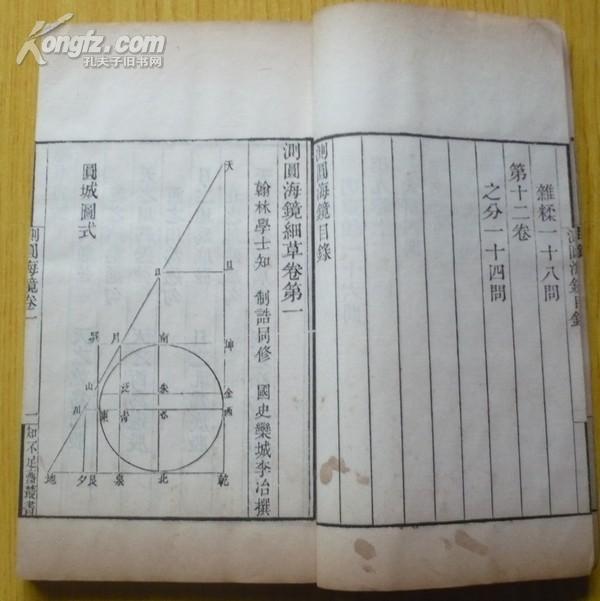 Kongfz.com
孔夫子旧书网
測圓海鏡目錄
雜糅一十八問
第十二卷
之分一十四問
測圓海鏡目錄
測圓海鏡細草卷第一
翰林學士知 制誥同修 國史欒城李冶撰
圓城圖式
天
日 旦
巽 月 南 坤
山 泛 朱 金
川 東 青 心 西
地 夕 艮 泉 北 乾
測圓海鏡卷一
一
知不足齋叢書